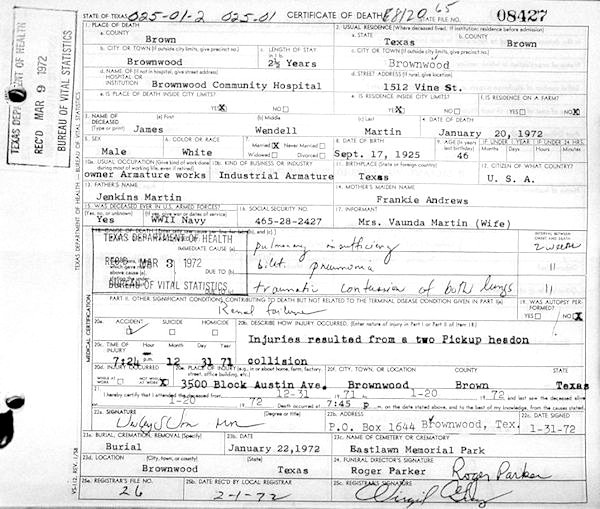 STATE OF TEXAS 025-01-2 025.01 CERTIFICATE OF DEATH E8120 65 STATE FILE NO. 08427
1. PLACE OF DEATH
a. COUNTY
Brown
2. USUAL RESIDENCE (Where deceased lived. If institution: residence before admission)
a. STATE
Texas
b. COUNTY
Brown
b. CITY OR TOWN (If outside city limits, give precinct no.)
Brownwood
c. LENGTH OF STAY
2½ Years
c. CITY OR TOWN (If outside city limits, give precinct no.)
Brownwood
d. NAME OF (If not in hospital, give street address)
HOSPITAL OR
INSTITUTION
Brownwood Community Hospital
d. STREET ADDRESS (If rural, give location)
1512 Vine St.
e. IS PLACE OF DEATH INSIDE CITY LIMITS?
YES X NO
e. IS RESIDENCE INSIDE CITY LIMITS?
YES X NO
f. IS RESIDENCE ON A FARM?
YES NO X
3. NAME OF
DECEASED
(Type or print)
(a) First
James
(b) Middle
Wendell
(c) Last
Martin
4. DATE OF DEATH
January 20, 1972
5. SEX
Male
6. COLOR OR RACE
White
7.
Married X Never Married
Widowed Divorced
8. DATE OF BIRTH
Sept. 17, 1925
9. AGE (In years last birthday)
46
IF UNDER 1 YEAR
Months Days
IF UNDER 24 HRS.
Hours Min.
10a. USUAL OCCUPATION (Give kind of work done during most of working life, even if retired)
owner Armature works
10b. KIND OF BUSINESS OR INDUSTRY
Industrial Armature
11. BIRTHPLACE (State or foreign country)
Texas
12. CITIZEN OF WHAT COUNTRY?
U. S. A.
13. FATHER'S NAME
Jenkins Martin
14. MOTHER'S MAIDEN NAME
Frankie Andrews
15. WAS DECEASED EVER IN U.S. ARMED FORCES?
(Yes, no, or unknown) (If yes, give war or dates of service)
Yes WWII Navy
16. SOCIAL SECURITY NO.
465-28-2427
17. INFORMANT
Mrs. Vaunda Martin (Wife)
INTERVAL BETWEEN
ONSET AND DEATH
TEXAS DEPARTMENT OF HEALTH
REC'D MAR 3 1972
BUREAU OF VITAL STATISTICS
IMMEDIATE CAUSE (a)
pulmonary insufficiency
2 weeks
DUE TO (b)
bilat. pneumonia
"
DUE TO (c)
traumatic contusion of both lungs
"
PART II. OTHER SIGNIFICANT CONDITIONS CONTRIBUTING TO DEATH BUT NOT RELATED TO THE TERMINAL DISEASE CONDITION GIVEN IN PART I(a)
Renal failure
19. WAS AUTOPSY PERFORMED?
YES NO X
20a. ACCIDENT SUICIDE HOMICIDE
20b. DESCRIBE HOW INJURY OCCURRED. (Enter nature of injury in Part I or Part II of item 18.)
Injuries resulted from a two Pickup headon
collision
20c. TIME OF INJURY Hour Month Day Year
7:24 p.m. 12 31 71
20d. INJURY OCCURRED
WHILE AT WORK NOT WHILE AT WORK X
20e. PLACE OF INJURY (e.g., in or about home, farm, factory, street, office building, etc.)
3500 Block Austin Ave.
20f. CITY, TOWN, OR LOCATION
Brownwood
COUNTY
Brown
STATE
Texas
21. I hereby certify that I attended the deceased from 12-31 19 71 to 1-20 19 72 and last saw the deceased alive
on 1-20 19 72 Death occurred at 7:45 p m. on the date stated above, and to the best of my knowledge, from the causes stated.
22a. SIGNATURE (Degree or title)
22b. ADDRESS
P.O. Box 1644 Brownwood, Tex.
22c. DATE SIGNED
1-31-72
23a. BURIAL, CREMATION, REMOVAL (Specify)
Burial
23b. DATE
January 22,1972
23c. NAME OF CEMETERY OR CREMATORY
Eastlawn Memorial Park
23d. LOCATION (City, town, or county) (State)
Brownwood Texas
24. FUNERAL DIRECTOR'S SIGNATURE
Roger Parker Roger Parker
25a. REGISTRAR'S FILE NO.
26
25b. DATE REC'D BY LOCAL REGISTRAR
2-1-72
25c. REGISTRAR'S SIGNATURE
Virgil
VS-112, REV. 1/58
MEDICAL CERTIFICATION
TEXAS DEPARTMENT OF HEALTH - BUREAU OF VITAL STATISTICS
TEXAS DEP NT OF HEALTH
REC'D MAR 9 1972
BUREAU OF VITAL STATISTICS